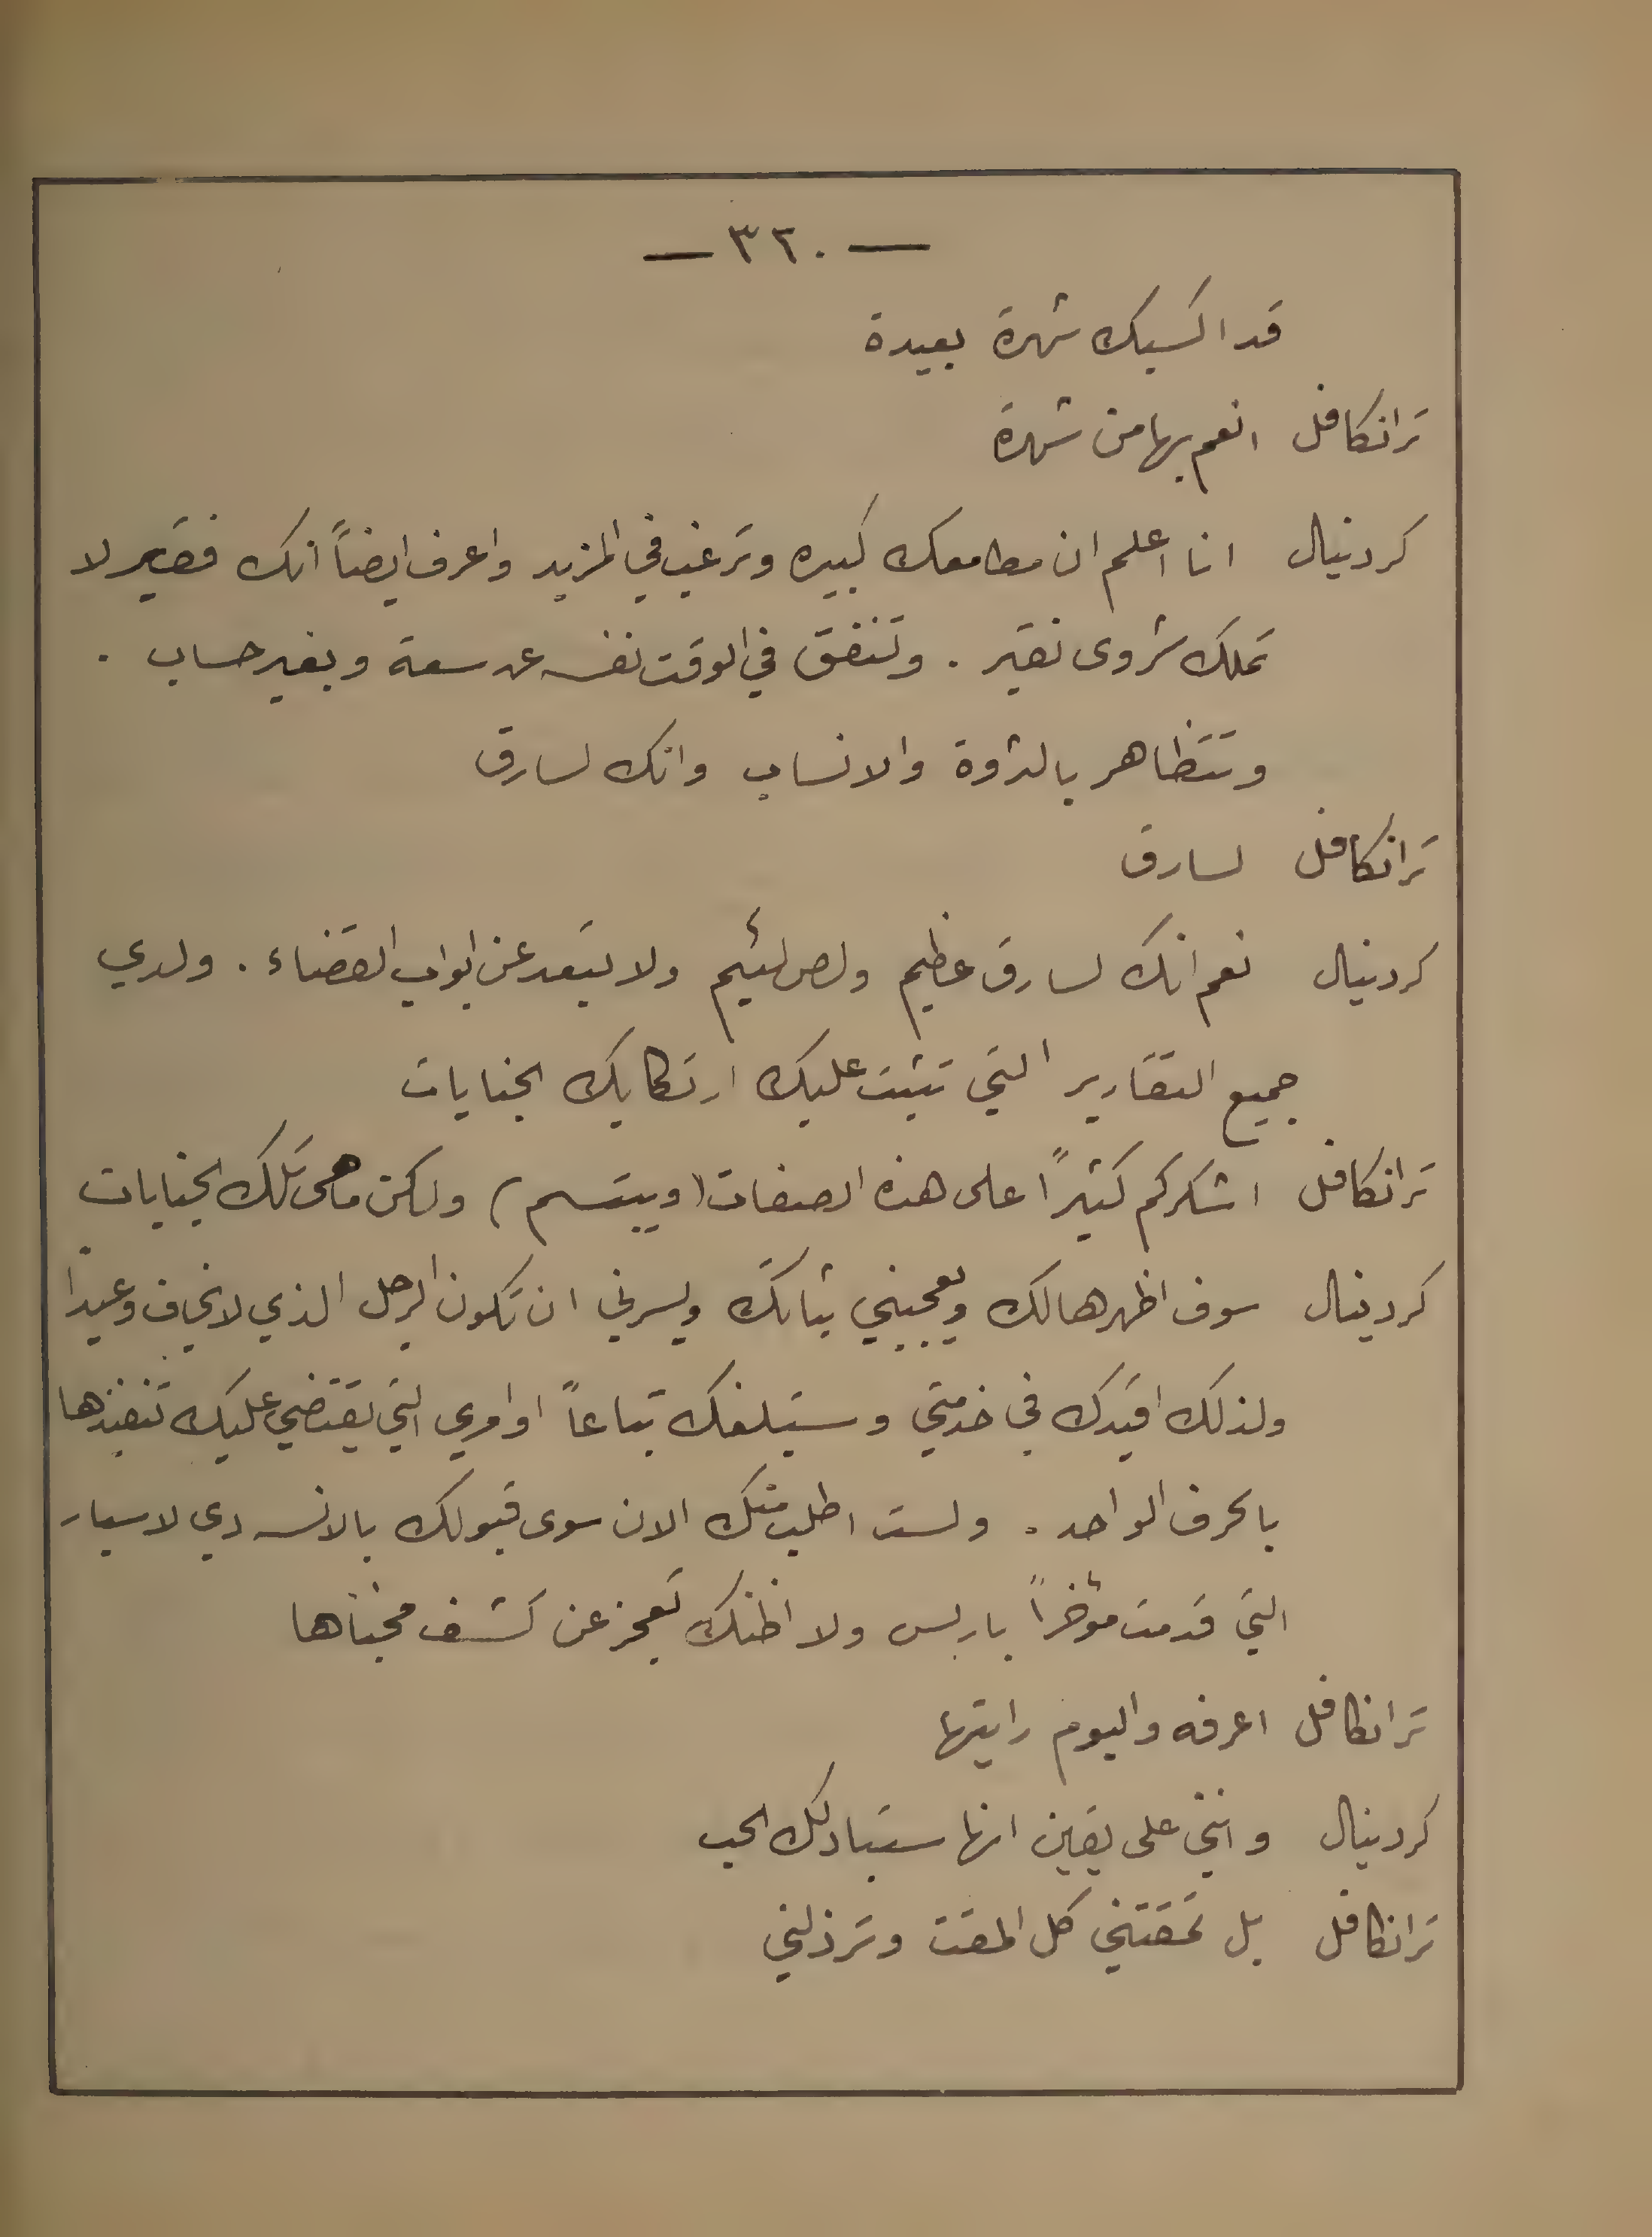 — ٣٢٠ —
قد اكسبك شهرة بعيدة
ترانكافل انعم بها من شهرة
كردينال انا اعلم ان مطامعك كبيره وترغب في المزيد واعرف ايضاً انك فقير لا
تملك شروى نقير . وتنفق في الوقت نفسه عن سعة وبغير حساب .
وتتظاهر بالثروة والانساب وانك لسارق
ترانكافل لسارق
كردينال نعم انك لسارق عظيم ولص لئيم ولا يبعد عن ابواب القضاء . ولدي
جميع التقارير التي تثبت عليك ارتكابك الجنايات
ترانكافل اشكركم كثيراً على هذه الصفات (ويبتسم) ولكن ما هى تلك الجنايات
كردينال سوف اظهرها لك ويعجبني ثباتك ويسرني ان تكون الرجل الذي لا يخاف وعيدا
ولذلك اقيدك في خدمتي وستبلغك تباعاً اوامري التي يقتضي عليك تنفيذها
بالحرف الواحد . ولست اطلب منك الان سوى قبولك بالانسه دي لاسبار
التي قدمت مؤخراً باريس ولا اظنك تعجز عن كشف مخبأها
ترانكافل اعرفه واليوم رايتها
كردينال وانني على يقين انها ستبادلك الحب
ترانكافل بل تمقتني كل المقت وترذلني